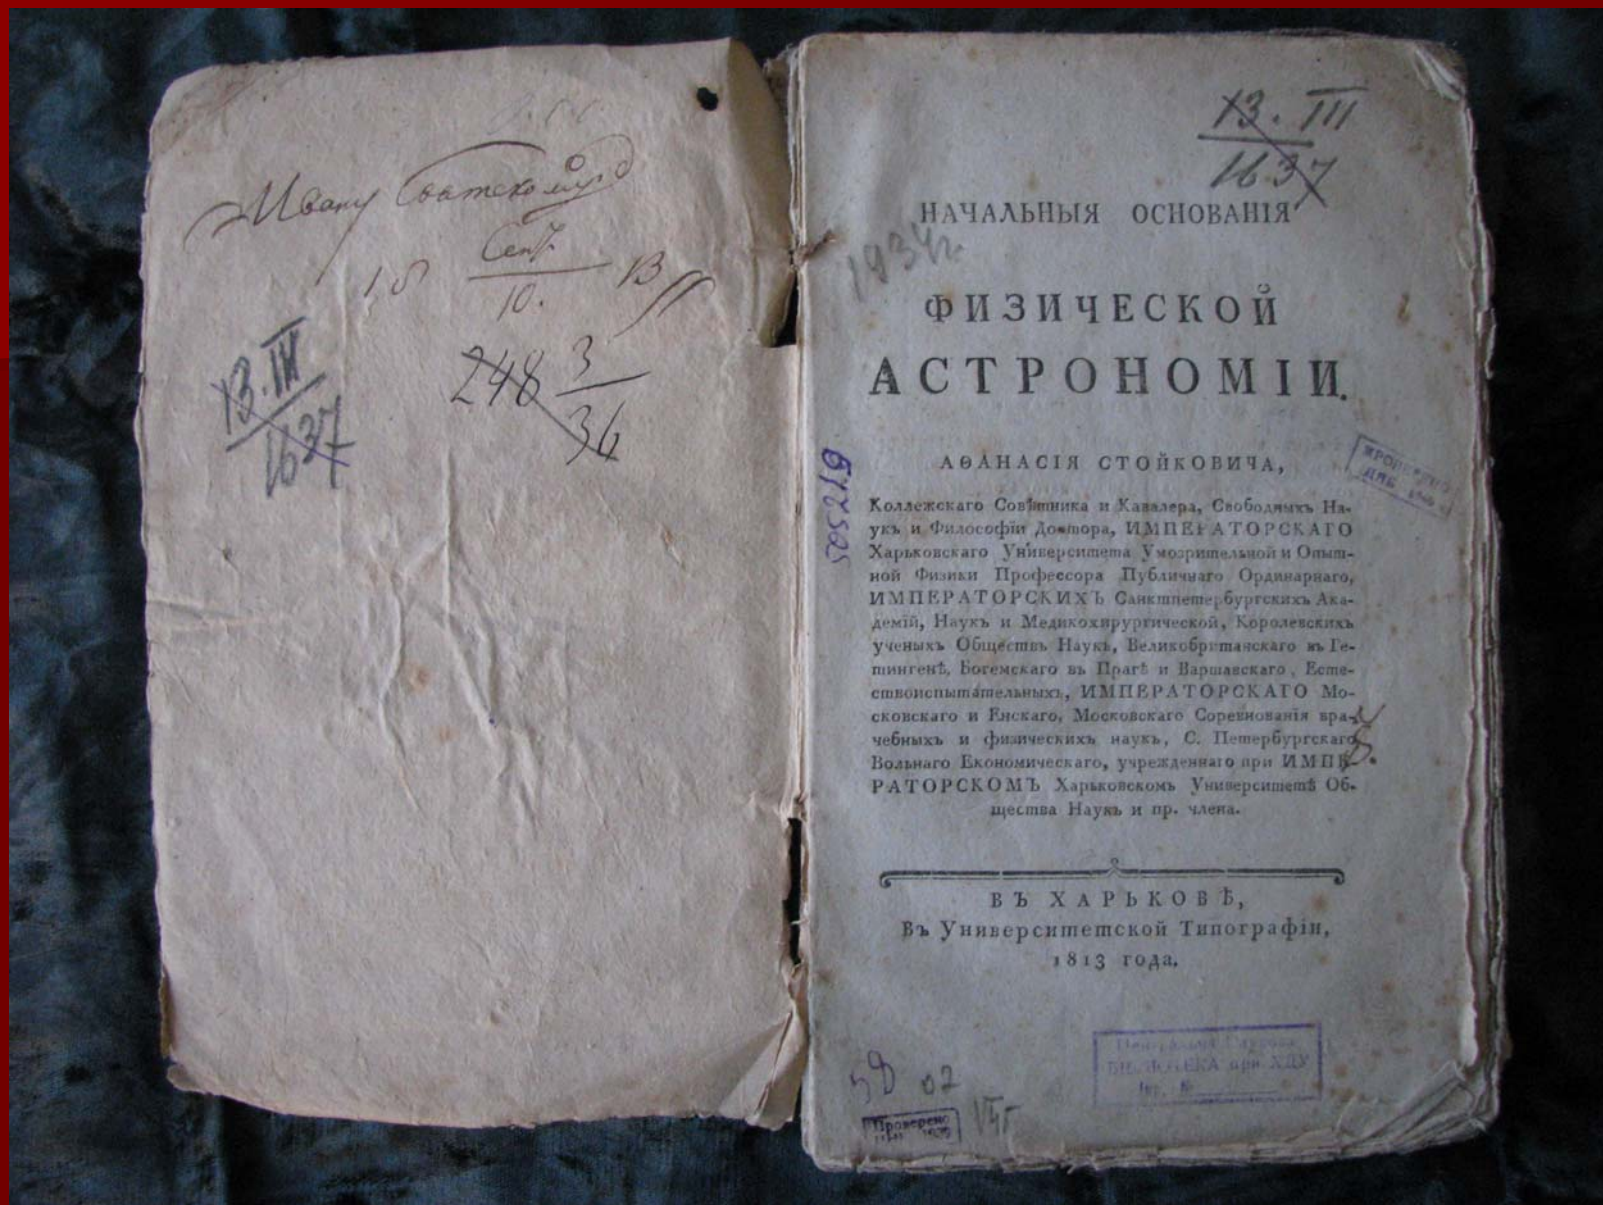 Ивану
Сент.
18 10. 13
13.III
1637
248 3
36
13.III
1637
1934г.
НАЧАЛЬНЫЯ ОСНОВАНІЯ
ФИЗИЧЕСКОЙ
АСТРОНОМІИ.
АѲАНАСІЯ СТОЙКОВИЧА,
Коллежскаго Совѣтника и Кавалера, Свободныхъ На-
укъ и Философіи Доктора, ИМПЕРАТОРСКАГО
Харьковскаго Университета Умозрительной и Опыт-
ной Физики Профессора Публичнаго Ординарнаго,
ИМПЕРАТОРСКИХЪ Санктпетербургскихъ Ака-
демій, Наукъ и Медикохирургической, Королевскихъ
ученыхъ Обществъ Наукъ, Великобританскаго въ Ге-
тингенѣ, Богемскаго въ Прагѣ и Варшавскаго, Есте-
ствоиспытательныхъ, ИМПЕРАТОРСКАГО Мо-
сковскаго и Енскаго, Московскаго Соревнованія вра-
чебныхъ и физическихъ наукъ, С. Петербургскаго
Вольнаго Економическаго, учрежденнаго при ИМПЕ-
РАТОРСКОМЪ Харьковскомъ Университетѣ Об-
щества Наукъ и пр. члена.
ВЪ ХАРЬКОВѢ,
Въ Университетской Типографіи,
1813 года.
Центральна Наукова
БІБЛІОТЕКА при ХДУ
Інв. №
02
Проверено